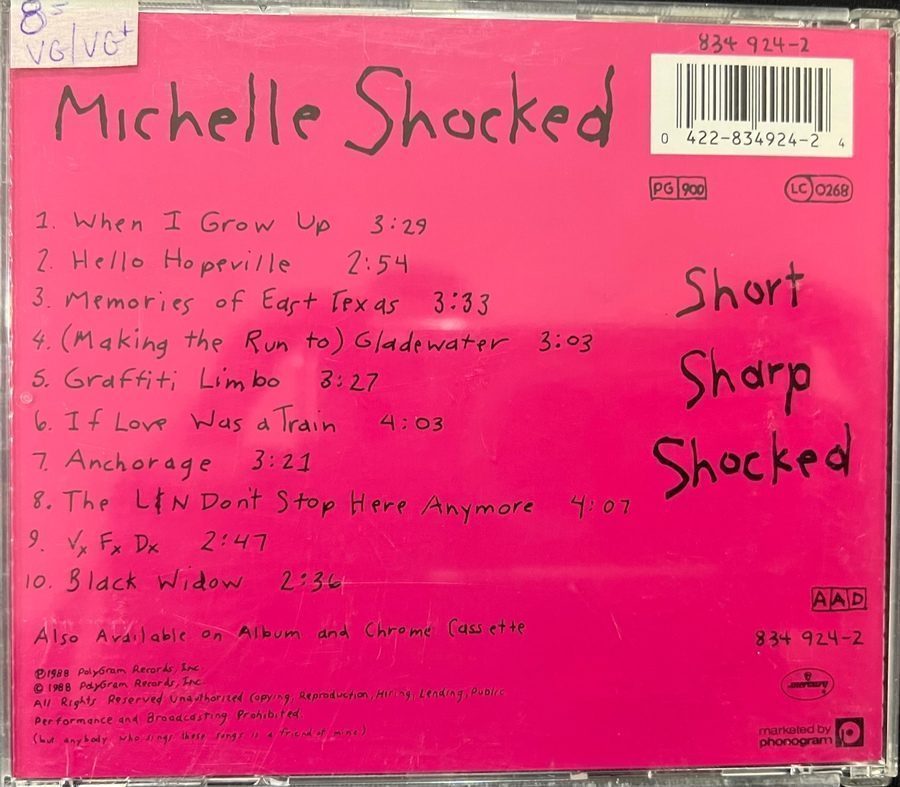 8=
VG/VG+
834 924-2
Michelle Shocked
0 422-834924-2 4
PG 900
LC 0268
1. When I Grow Up 3:29
2. Hello Hopeville 2:54
3. Memories of East Texas 3:33
4. (Making the Run to) Gladewater 3:03
5. Graffiti Limbo 3:27
6. If Love Was a Train 4:03
7. Anchorage 3:21
8. The L&N Don't Stop Here Anymore 4:07
9. Vx Fx Dx 2:47
10. Black Widow 2:36
Short
Sharp
Shocked
Also Available on Album and Chrome Cassette
AAD
834 924-2
℗1988 PolyGram Records, Inc.
© 1988 PolyGram Records, Inc.
All Rights Reserved Unauthorized Copying, Reproduction, Hiring, Lending, Public
Performance and Broadcasting Prohibited.
(but anybody who sings these songs is a friend of mine)
mercury
marketed by
phonogram